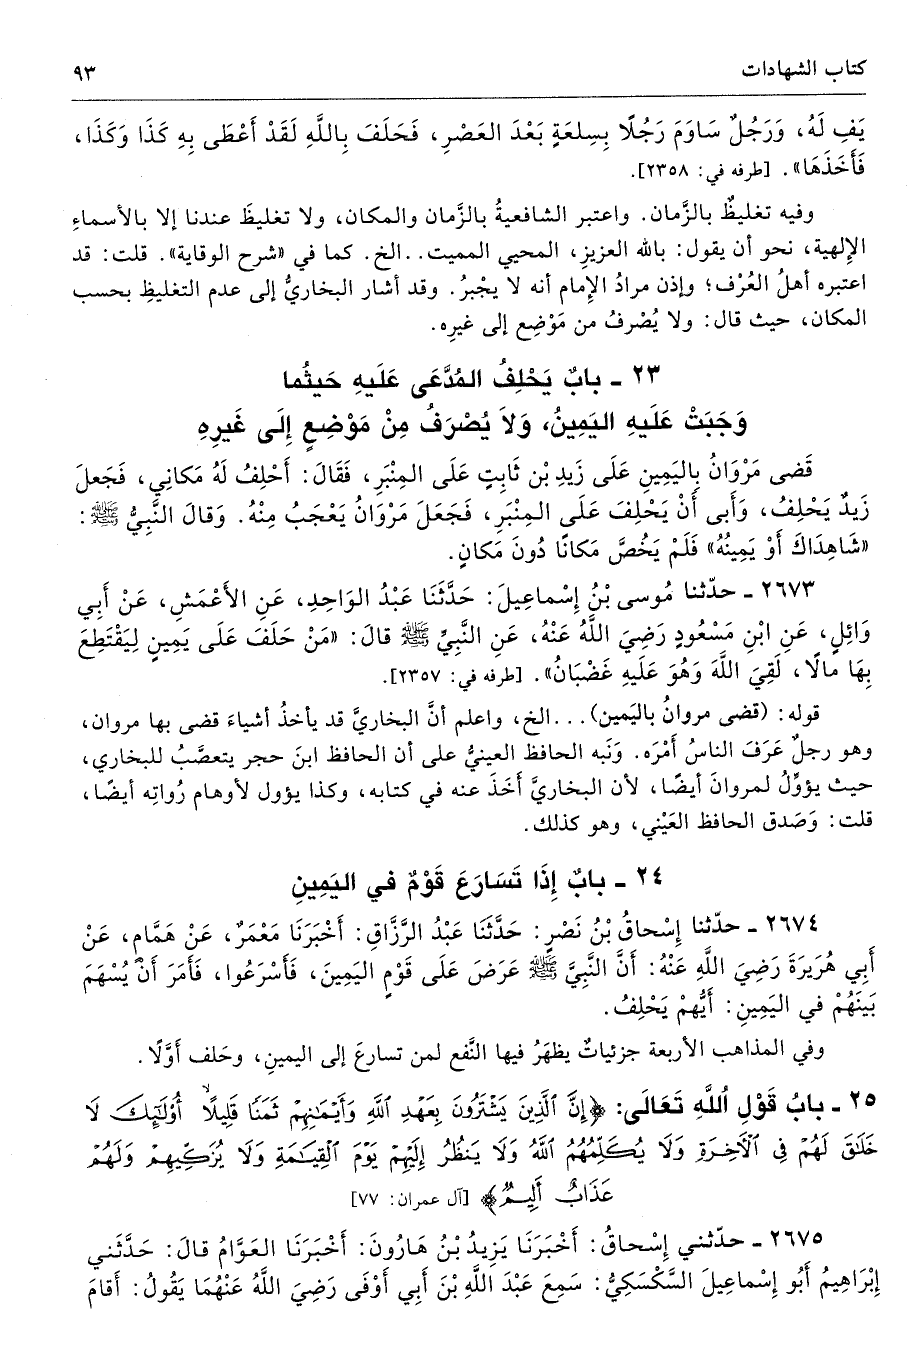 كتاب الشهادات ٩٣
يَفِ لَهُ، وَرَجُلٌ سَاوَمَ رَجُلًا بِسِلعَةٍ بَعْدَ العَصْرِ، فَحَلَفَ بِاللَّهِ لَقَدْ أَعْطَى بِهِ كَذَا وَكَذَا،
فَأَخَذَهَا». [طرفه في: ٢٣٥٨].
وفيه تغليظٌ بالزَّمان. واعتبر الشافعيةُ بالزَّمان والمكان، ولا تغليظَ عندنا إلا بالأسماءِ
الإِلهية، نحو أن يقول: بالله العزيزِ، المحيي المميت. . .الخ. كما في «شرح الوقاية». قلت: قد
اعتبره أهلُ العُرْف؛ وإذن مرادُ الإِمام أنه لا يجْبرُ. وقد أشار البخاريُّ إلى عدم التغليظِ بحسب
المكان، حيث قال: ولا يُصْرفُ من مَوْضِع إلى غيرِه.
٢٣ - بابٌ يَحْلِفُ المُدَّعَى عَلَيهِ حَيثُما
وَجَبَتْ عَلَيهِ اليَمِينُ، وَلاَ يُصْرَفُ مِنْ مَوْضِعٍ إِلَى غَيرِهِ
قَضى مَرْوَانُ بِاليَمِينِ عَلَى زَيدِ بْنِ ثَابِتٍ عَلَى المِنْبَرِ، فَقَالَ: أَحْلِفُ لَهُ مَكانِي، فَجَعلَ
زَيدٌ يَحْلِفُ، وَأَبى أَنْ يَحْلِفَ عَلَى المِنْبَرِ، فَجَعَلَ مَرْوَانُ يَعْجَبُ مِنْهُ. وَقالَ النَّبِيُّ ﷺ:
«شَاهِدَاكَ أَوْ يَمِينُهُ» فَلَمْ يَخُصَّ مَكانًا دُونَ مَكانٍ.
٢٦٧٣ - حدّثنا مُوسى بْنُ إِسْماعِيلَ: حَدَّثَنَا عَبْدُ الوَاحِدِ، عَنِ الأَعْمَشِ، عَنْ أَبِي
وَائِلٍ، عَنِ ابْنِ مَسْعُودٍ رَضِيَ اللَّهُ عَنْهُ، عَنِ النَّبِيِّ ﷺ قالَ: «مَنْ حَلَفَ عَلَى يَمِينٍ لِيَقْتَطِعَ
بِهَا مالًا، لَقِيَ اللَّهَ وَهُوَ عَلَيهِ غَضْبَانُ». [طرفه في: ٢٣٥٧].
قوله: (قضى مروانُ باليَمين). . .الخ، واعلم أنَّ البخاريَّ قد يأخذُ أشياءَ قضى بها مروان،
وهو رجلٌ عَرَفَ الناسُ أمْرَه. وَنَبه الحافظ العينيُّ على أن الحافظ ابنَ حجر يتعصَّبُ للبخاري،
حيث يؤوِّلُ لمروانَ أيضًا، لأن البخاريَّ أخَذَ عنه في كتابه، وكذا يؤول لأوهام رُواتِه أيضًا،
قلت: وَصَدق الحافظ العَيْني، وهو كذلك.
٢٤ - بابٌ إِذَا تَسَارَعَ قَوْمٌ في اليَمِينِ
٢٦٧٤ - حدّثنا إِسْحاقُ بْنُ نَصْرٍ: حَدَّثَنَا عَبْدُ الرَّزَّاقِ: أَخْبَرَنَا مَعْمَرٌ، عَنْ هَمَّامٍ، عَنْ
أَبِي هُرَيرَةَ رَضِيَ اللَّهِ عَنْهُ: أَنَّ النَّبِيَّ ﷺ عَرَضَ عَلَى قَوْمٍ اليَمِينَ، فَأَسْرَعُوا، فَأَمَرَ أَنْ يُسْهَمَ
بَينَهُمْ في اليَمِينِ: أَيُّهُمْ يَحْلِفُ.
وفي المذاهب الأربعة جزئياتٌ يظهَرُ فيها النَّفع لمن تسارعَ إلى اليمينِ، وحَلف أوَّلًا.
٢٥ - بابُ قَوْلِ اللَّهِ تَعَالَى: ﴿إِنَّ الَّذِينَ يَشْتَرُونَ بِعَهْدِ اللَّهِ وَأَيْمَٰنِهِمْ ثَمَنًا قَلِيلًا أُوْلَٰٓئِكَ لَا
خَلَٰقَ لَهُمْ فِي الْأَخِرَةِ وَلَا يُكَلِّمُهُمُ اللَّهُ وَلَا يَنظُرُ إِلَيْهِمْ يَوْمَ الْقِيَٰمَةِ وَلَا يُزَكِّيهِمْ وَلَهُمْ
عَذَابٌ أَلِيمٌ﴾ [آل عمران: ٧٧]
٢٦٧٥ - حدّثني إِسْحاقُ: أَخْبَرَنَا يَزِيدُ بْنُ هَارُونَ: أَخْبَرَنَا العَوَّامُ قالَ: حَدَّثَني
إِبْرَاهِيمُ أَبُو إِسْماعِيلَ السَّكْسَكِيُّ: سَمِعَ عَبْدَ اللَّهِ بْنَ أَبِي أَوْفَى رَضِيَ اللَّهُ عَنْهُمَا يَقُولُ: أَقامَ